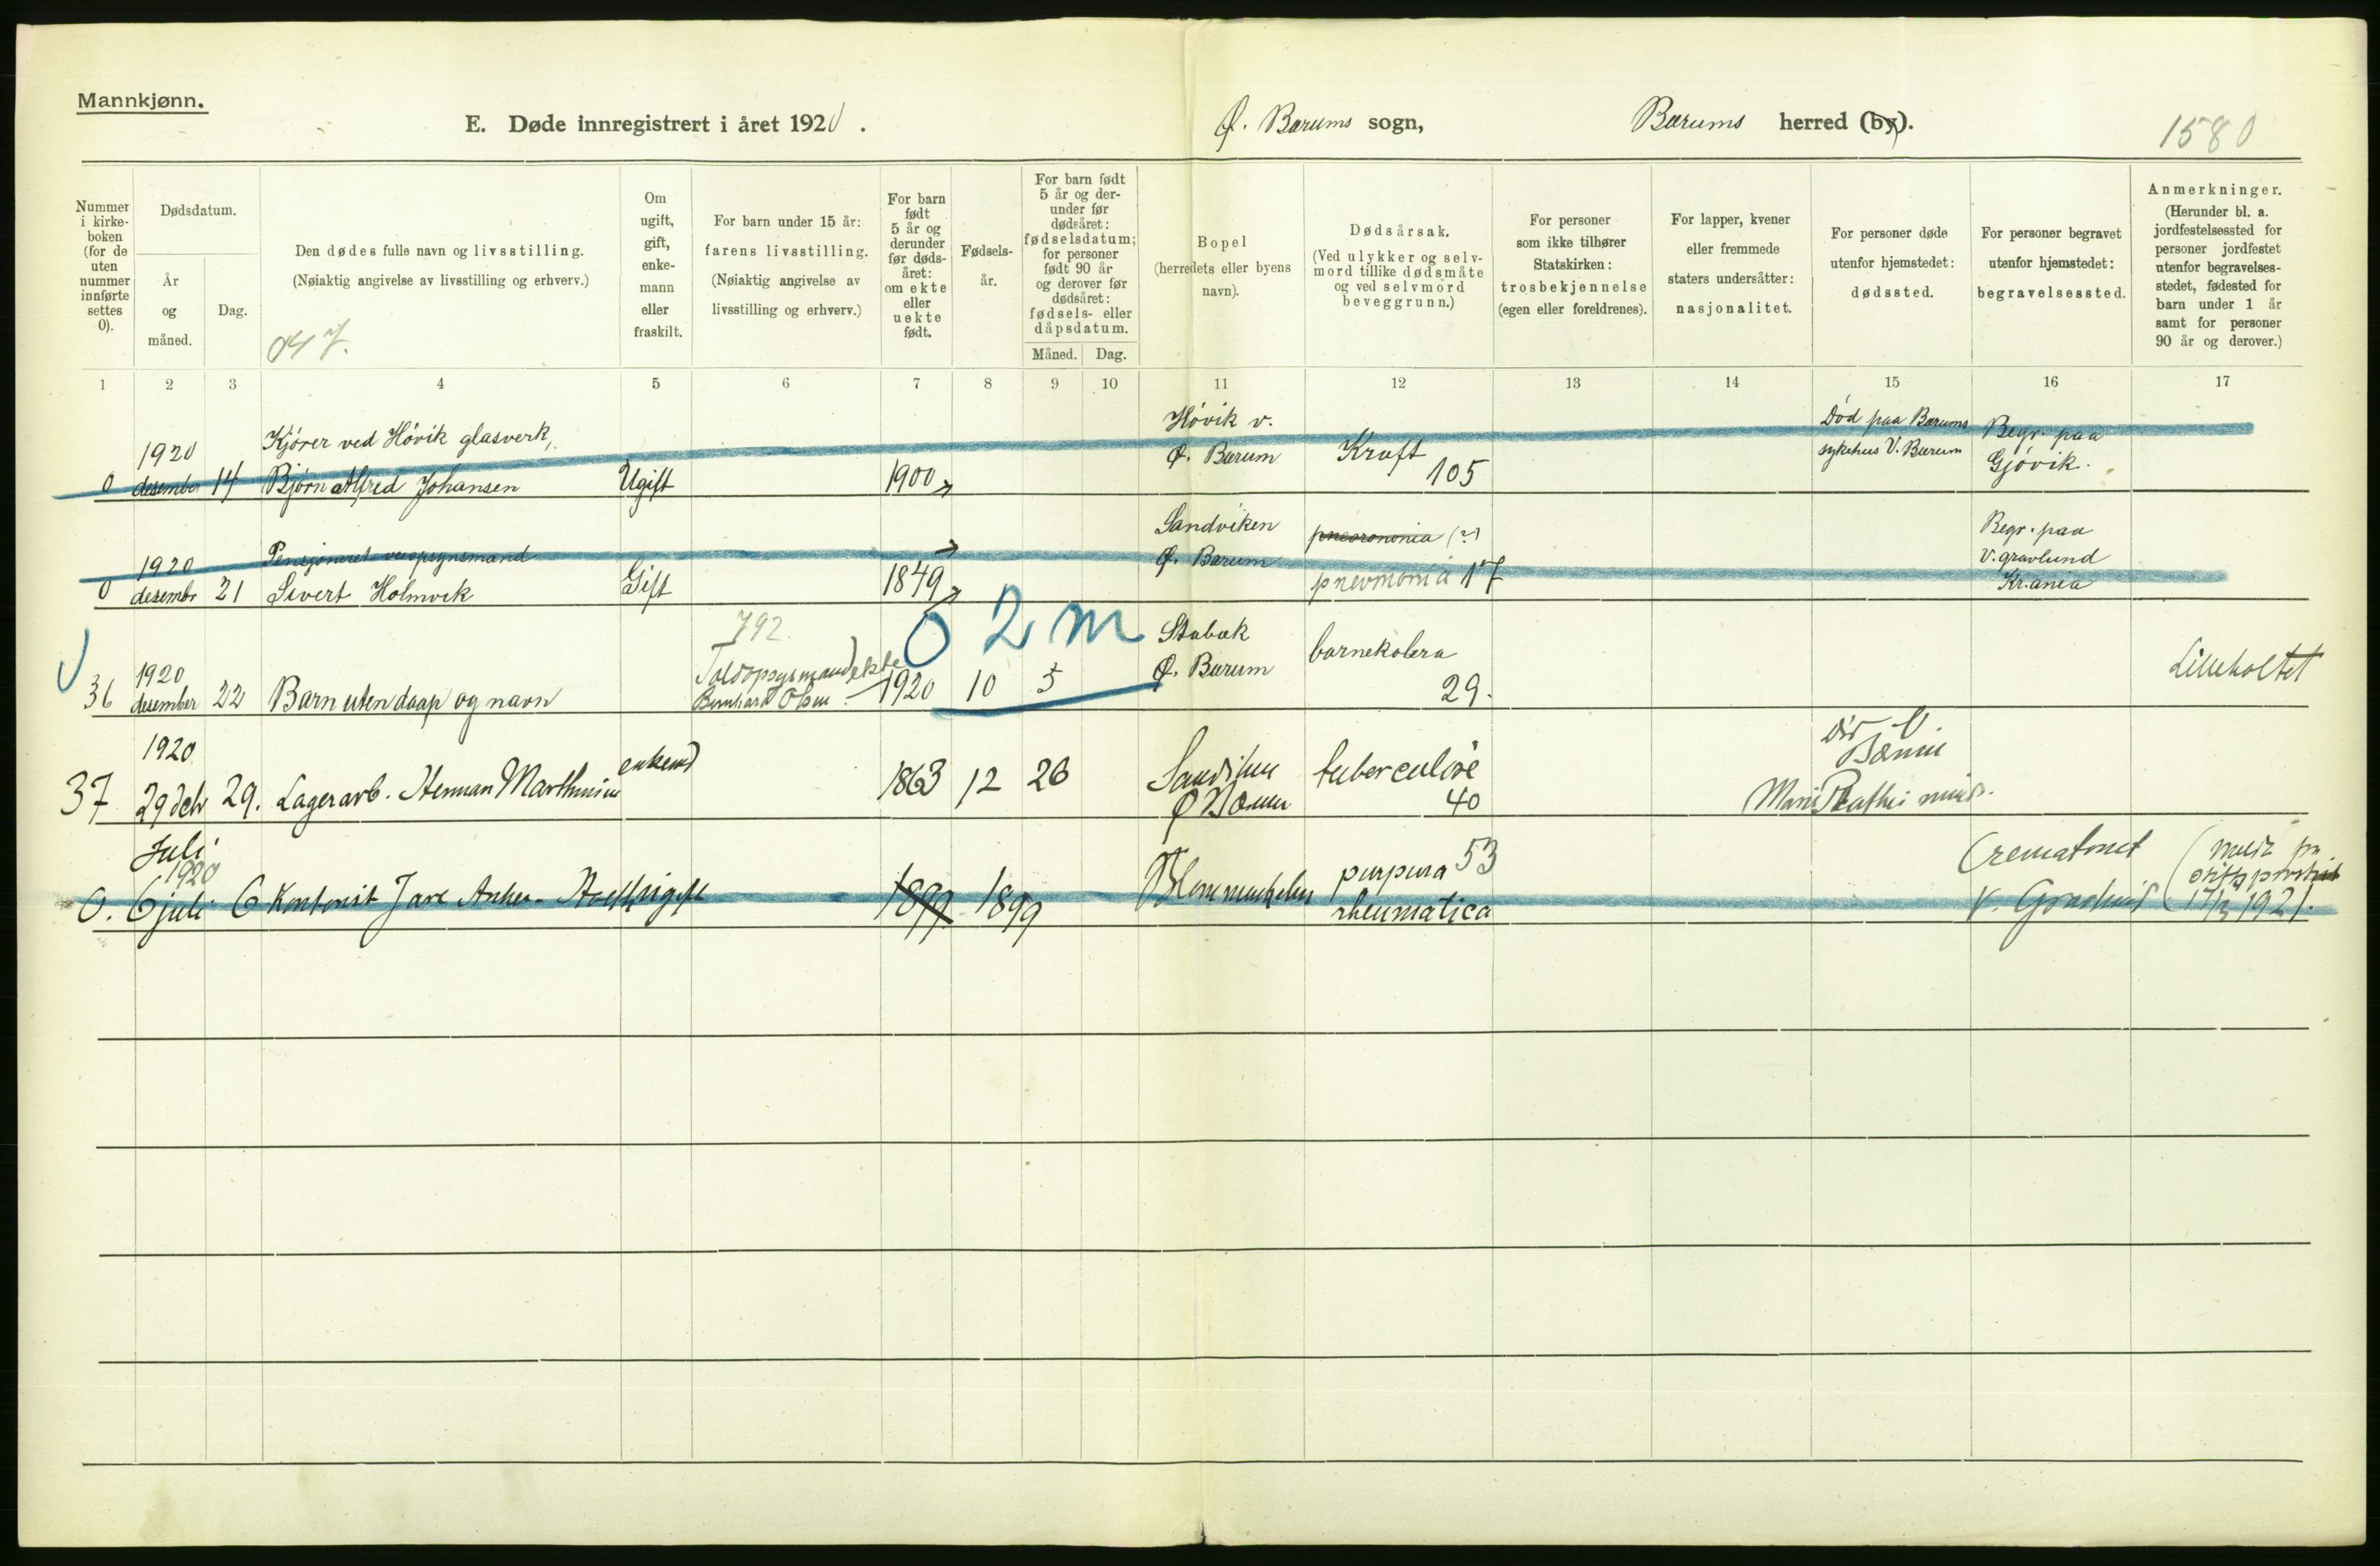 Mannkjønn.
E. Døde innregistrert i året 1920.
Ø. Bærums sogn,
Bærums herred (by).
1580
Nummer i kirke-boken (for de uten nummer innførte settes 0).
Dødsdatum.
År og måned.
Dag.
Den dødes fulle navn og livsstilling.
(Nøiaktig angivelse av livsstilling og erhverv.)
047.
Om ugift, gift, enke-mann eller fraskilt.
For barn under 15 år:
farens livsstilling.
(Nøiaktig angivelse av livsstilling og erhverv.)
For barn født 5 år og derunder før døds-året: om ekte eller uekte født.
Fødsels-år.
For barn født 5 år og der-under før dødsåret: fødselsdatum; for personer født 90 år og derover før dødsåret: fødsels- eller dåpsdatum.
Måned.
Dag.
Bopel
(herredets eller byens navn).
Dødsårsak.
(Ved ulykker og selv-mord tillike dødsmåte og ved selvmord beveggrunn.)
For personer som ikke tilhører Statskirken: trosbekjennelse (egen eller foreldrenes).
For lapper, kvener eller fremmede staters undersåtter: nasjonalitet.
For personer døde utenfor hjemstedet: dødssted.
For personer begravet utenfor hjemstedet: begravelsessted.
Anmerkninger.
(Herunder bl. a. jordfestelsessted for personer jordfestet utenfor begravelses-stedet, fødested for barn under 1 år samt for personer 90 år og derover.)
1 2 3 4 5 6 7 8 9 10 11 12 13 14 15 16 17
0 1920 desember 14
Kjører ved Høvik glasverk,
Bjørn Alfred Johansen
Ugift
1900
Høvik v.
Ø. Bærum
Kræft
105
Død paa Bærums
sykehus V. Bærum
Begr. paa
Gjøvik.
0 1920 desembr 21
Pensjoneret veiopsynsmand
Sivert Holmvik
Gift
1849
Sandviken
Ø. Bærum
(?)
pnevmonia 17
Begr. paa
V. gravlund
Kr.ania
0 2 m
36 1920 desember 22
Barn uten daap og navn
792.
Toldopsynsmand
Bernhard Olsen
ekte
1920 10 5
Stabæk
Ø. Bærum
barnekolera
29.
37 1920 29 29.
Lagerarb. Herman Marthinius
enkemd
1863 12 26
Ø Bærum
tuberculose
40
V.
Bærum
Juli
1920
0. 6 juli 6
Kontorist
ugift
1899 1899
purpura 53
rheumatica
Crematoriet
1921.